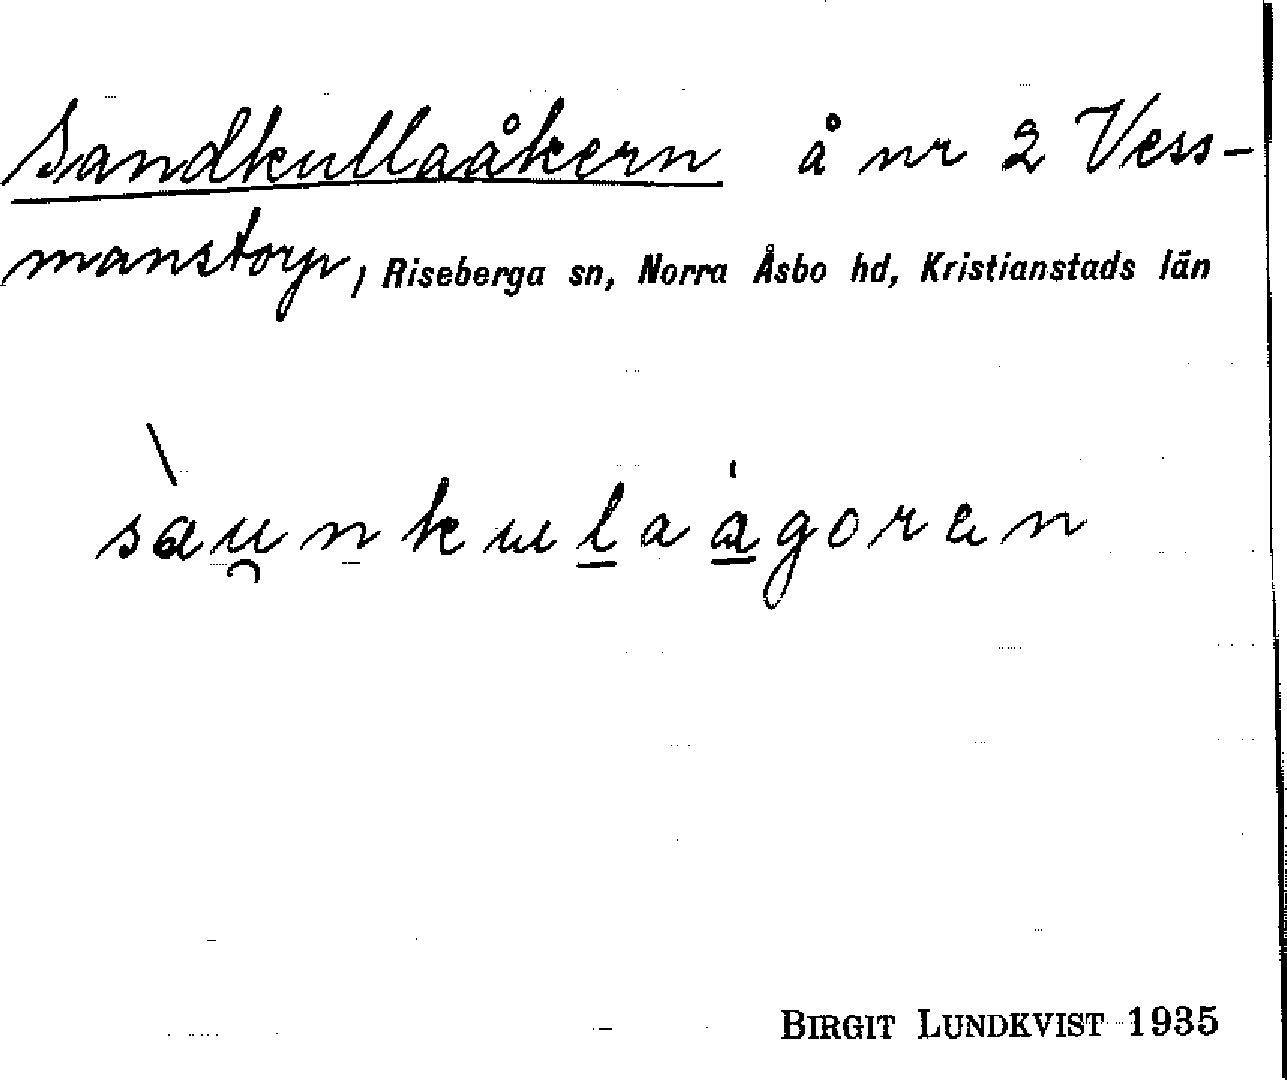 Sandkullaåkern å nr 2 Vess-
manstorp, Riseberga sn, Norra Åsbo hd, Kristianstads län
sàu̯nkulaágoran
BIRGIT LUNDKVIST 1935